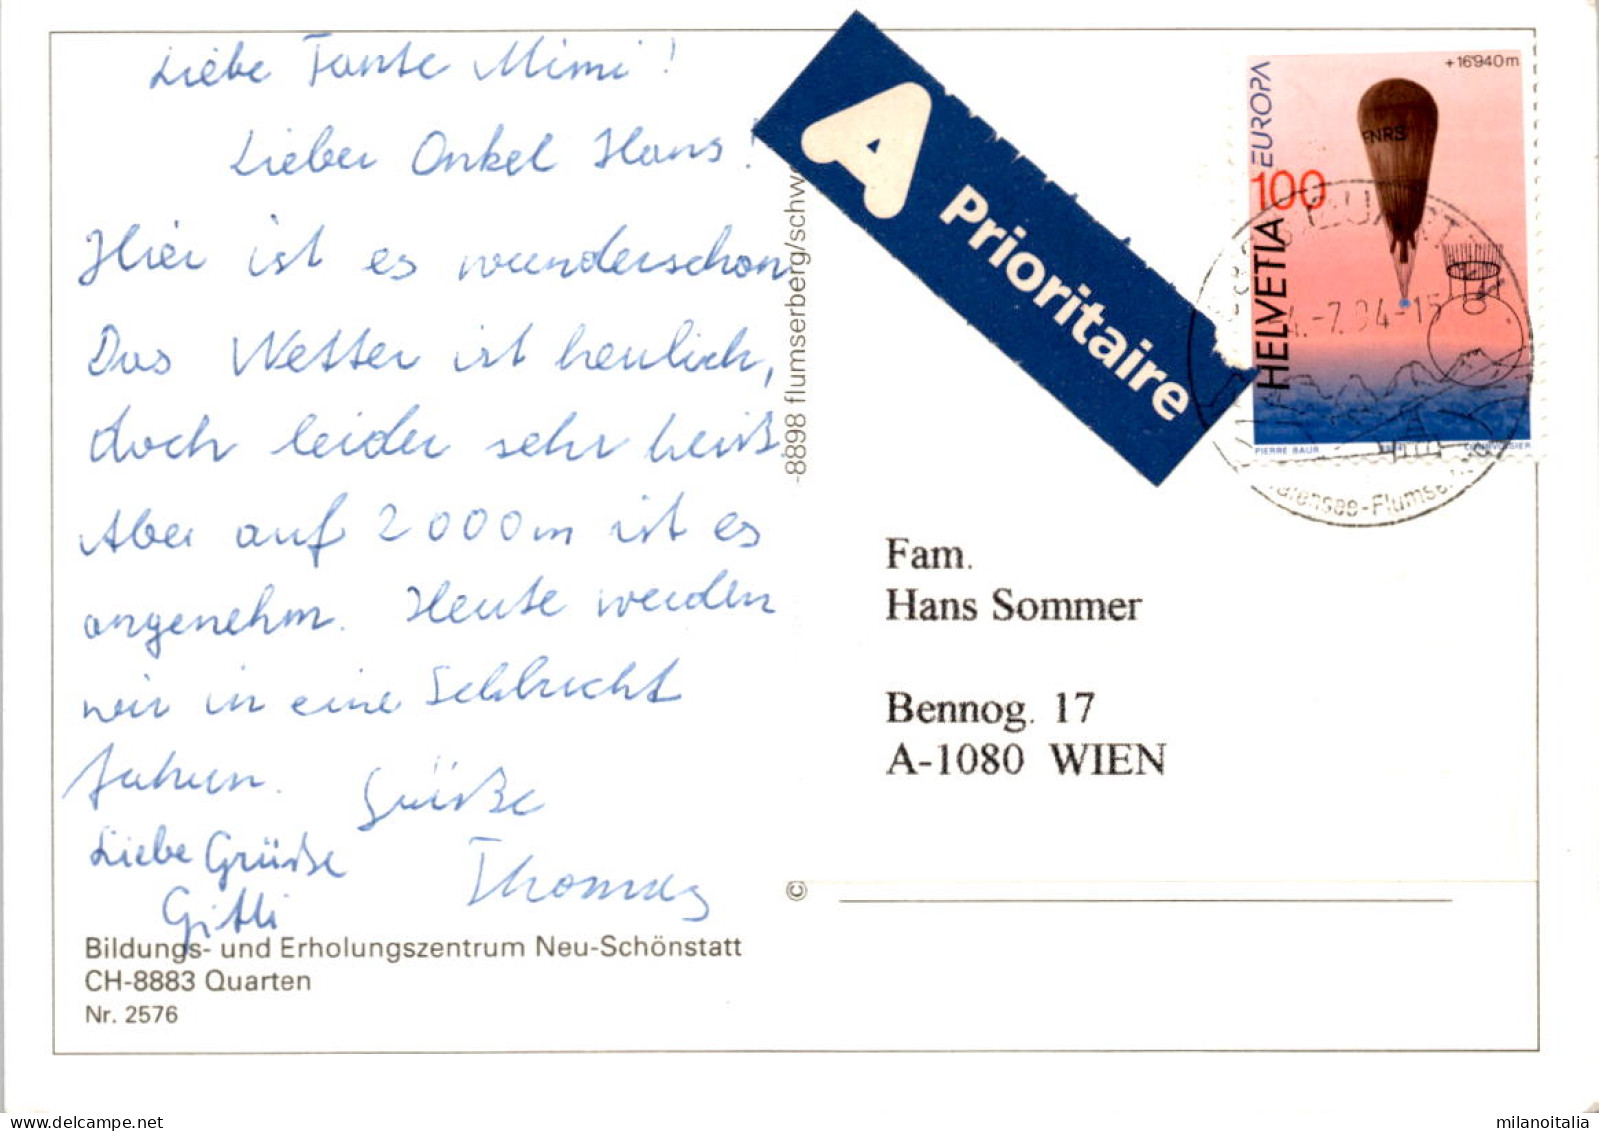 Liebe Tante Mimi!
Lieber Onkel Hans!
Hier ist es wunderschön
Das Wetter ist herrlich,
doch leider sehr heiß.
Aber auf 2000m ist es
angenehm. Heute werden
wir in eine Schlucht
fahren. Grüße
Liebe Grüße Thomas
Gitti
Bildungs- und Erholungszentrum Neu-Schönstatt
CH-8883 Quarten
Nr. 2576
-8898 flumserberg/schwe
©
A Prioritaire
+16'940m
EUROPA
FNRS
100
HELVETIA
PIERRE BAUR
COURVOISIER
QUART
4.-7.94-15
alensee-Flumse
Fam.
Hans Sommer
Bennog. 17
A-1080 WIEN
milanoitalia